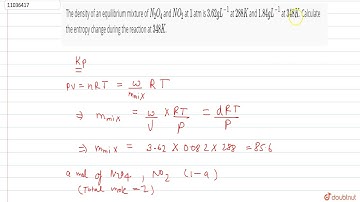 11036417
The density of an equilibrium mixture of N₂O₄ and NO₂ at 1 atm is 3.62gL⁻¹ at 288K and 1.84gL⁻¹ at 348K. Calculate
the entropy change during the reaction at 348K.
Kp
PV = nRT = w/mmix RT
⇒ mmix = w/V × RT/P = dRT/P
⇒ mmix = 3.62 × 0.082 × 288 = 85.6
a mol of N₂O₄ , NO₂ (1-a)
(Total mole = 1)
doubtnut